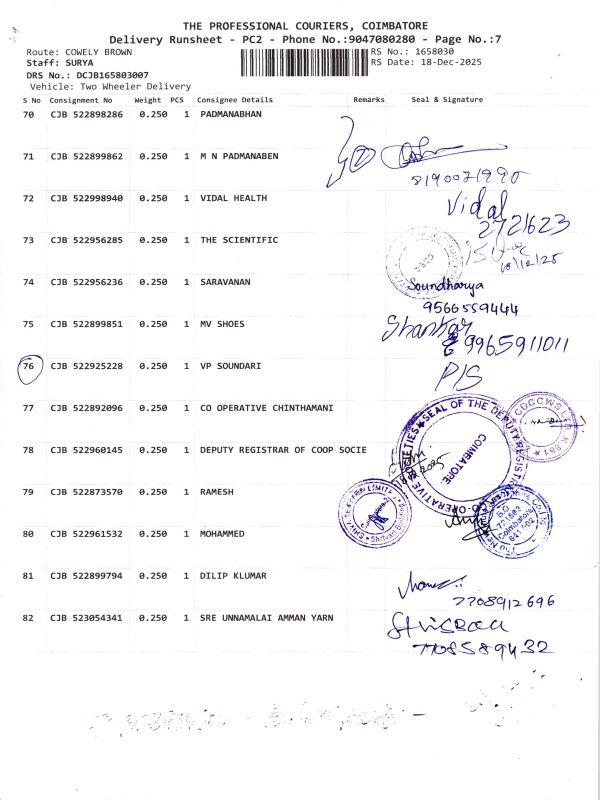 THE PROFESSIONAL COURIERS, COIMBATORE
Delivery Runsheet - PC2 - Phone No.:9047080280 - Page No.:7
Route: COWELY BROWN
RS No.: 1658030
Staff: SURYA
RS Date: 18-Dec-2025
DRS No.: DCJB165803007
Vehicle: Two Wheeler Delivery
S No Consignment No Weight PCS Consignee Details Remarks Seal & Signature
70 CJB 522898286 0.250 1 PADMANABHAN
71 CJB 522899862 0.250 1 M N PADMANABEN
8190071990
72 CJB 522998940 0.250 1 VIDAL HEALTH
Vidal
2721623
73 CJB 522956285 0.250 1 THE SCIENTIFIC
18/12/25
74 CJB 522956236 0.250 1 SARAVANAN
Soundharya
9566559444
75 CJB 522899851 0.250 1 MV SHOES
Shankar
9965911011
76 CJB 522925228 0.250 1 VP SOUNDARI
P/S
77 CJB 522892096 0.250 1 CO OPERATIVE CHINTHAMANI
SEAL OF THE DEPUTY REGISTR
COIMBATORE.
78 CJB 522960145 0.250 1 DEPUTY REGISTRAR OF COOP SOCIE
79 CJB 522873570 0.250 1 RAMESH
Coimbatore
641 002
80 CJB 522961532 0.250 1 MOHAMMED
81 CJB 522899794 0.250 1 DILIP KLUMAR
7708912696
82 CJB 523054341 0.250 1 SRE UNNAMALAI AMMAN YARN
7708589432